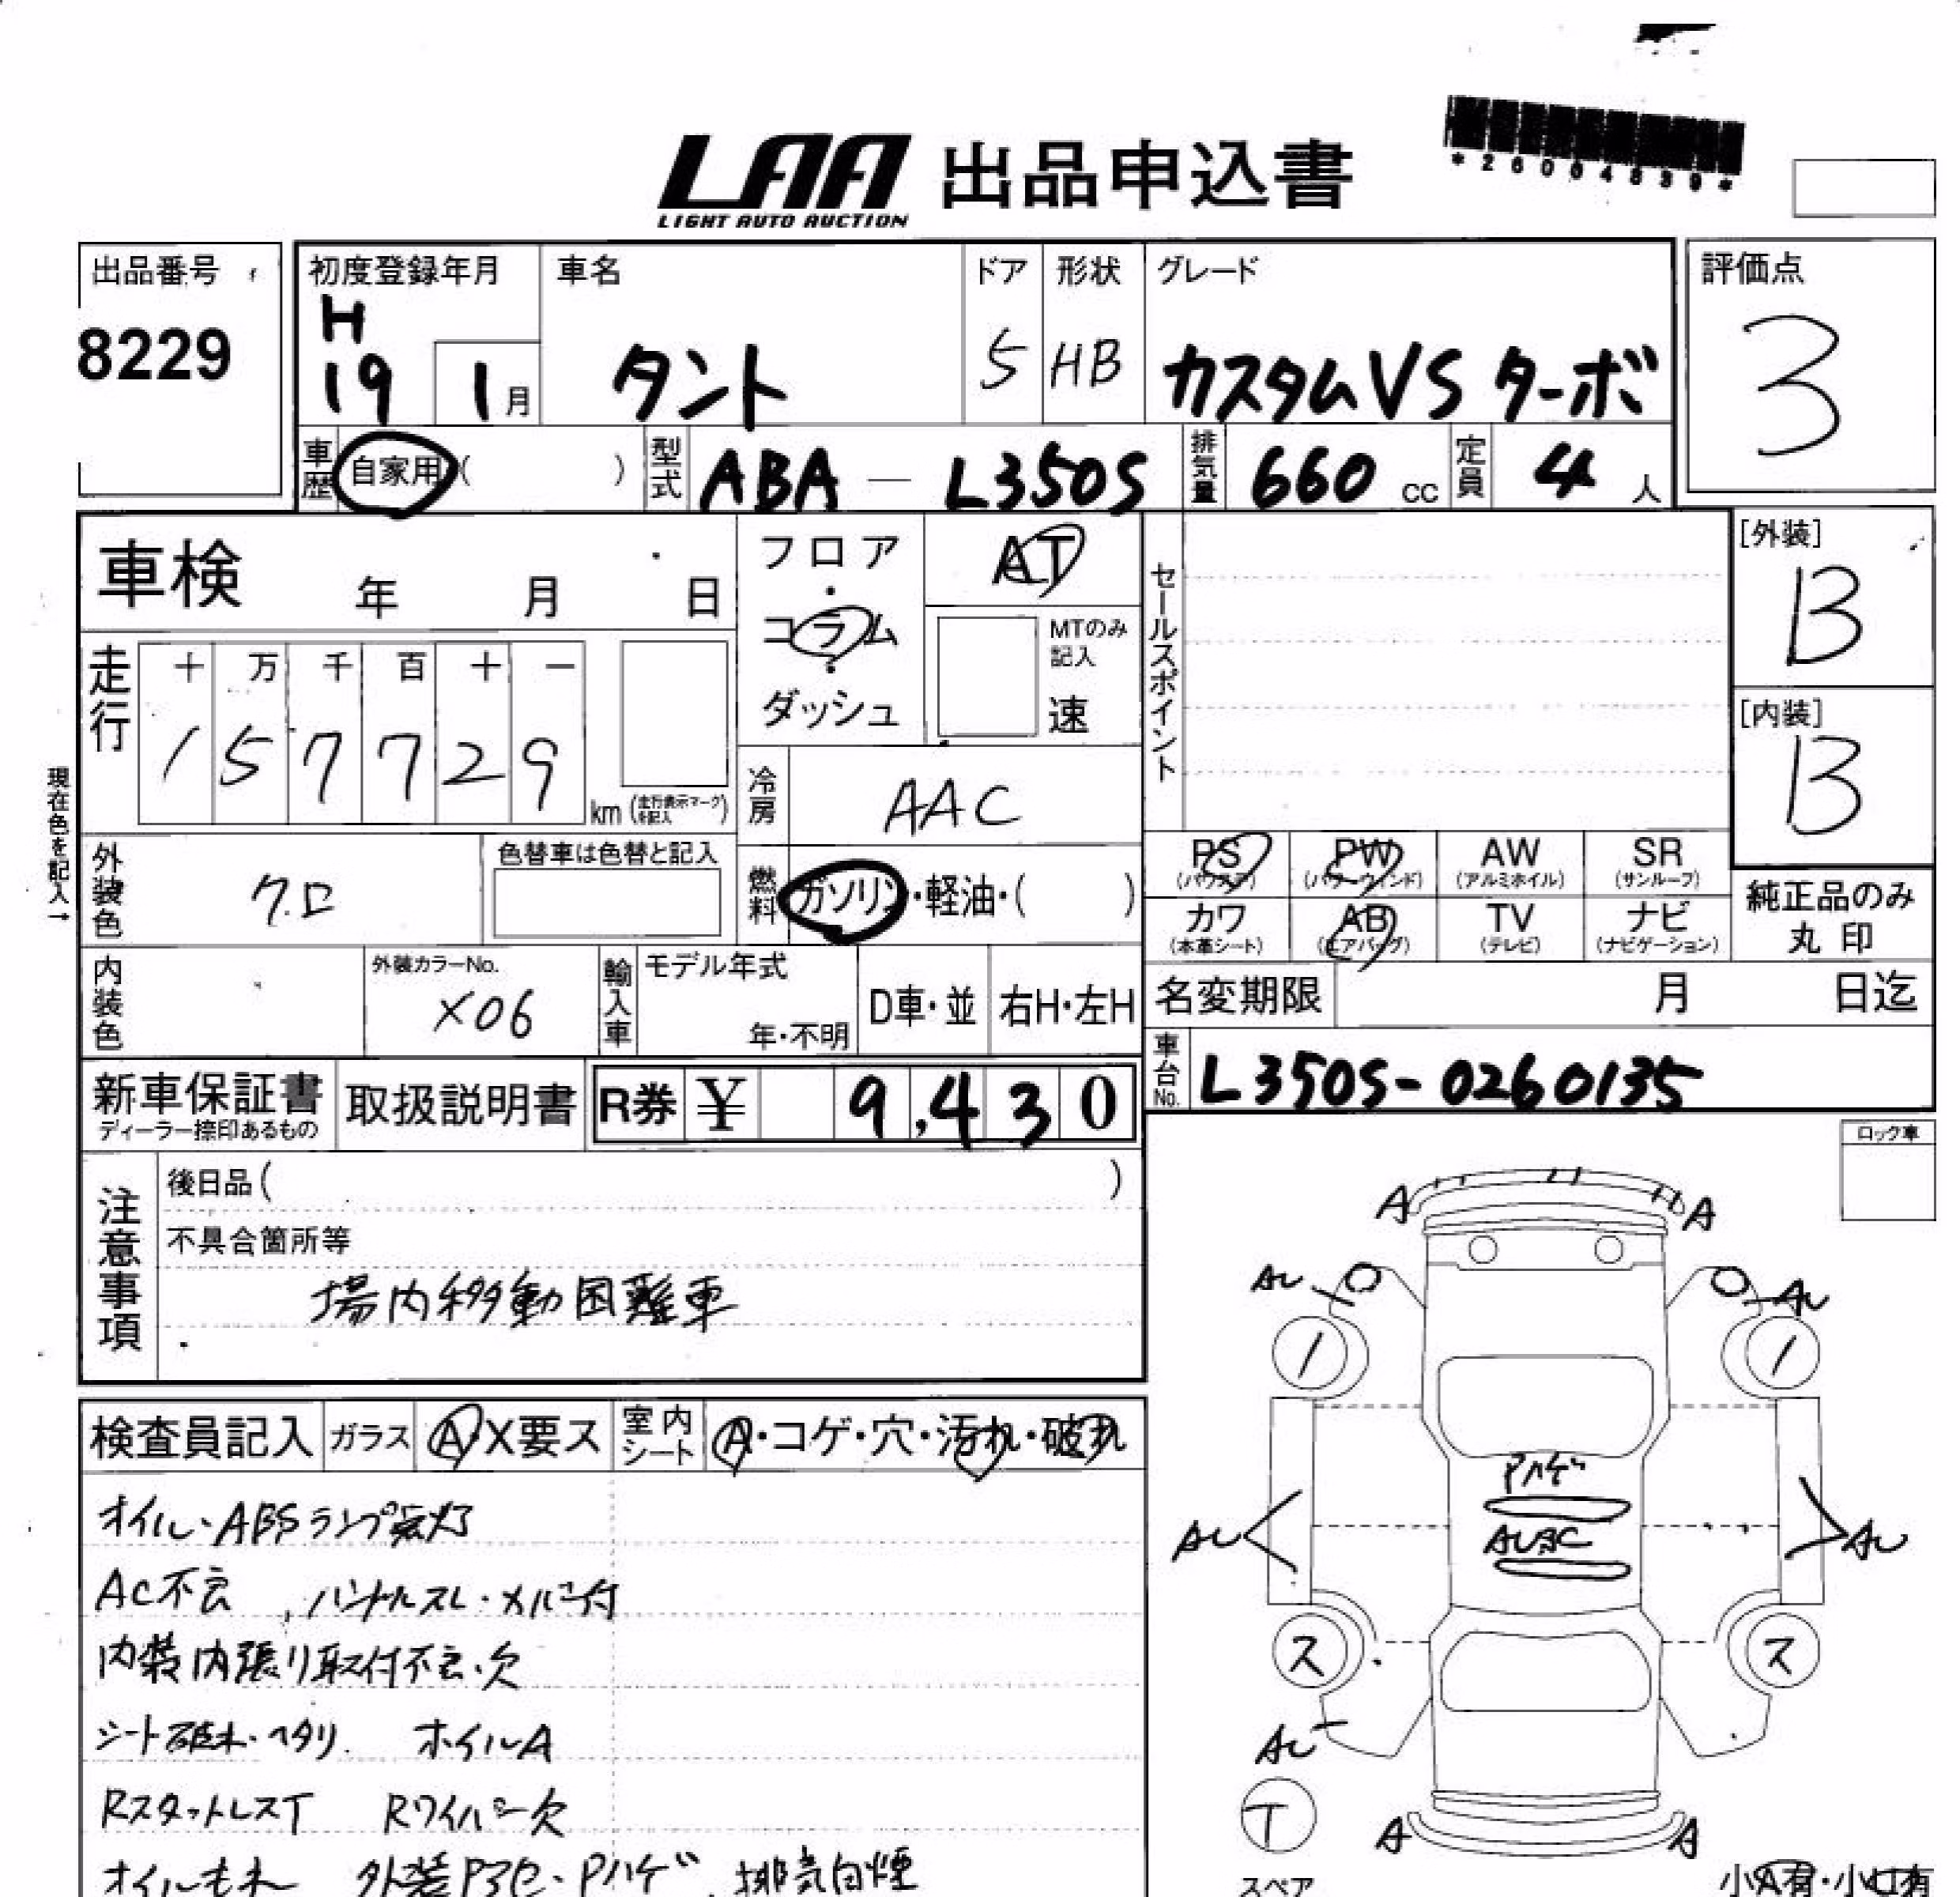 *26004839*
LAA 出品申込書
LIGHT AUTO AUCTION
出品番号
8229
初度登録年月
H
19 1月
車名
タント
ドア
5
形状
HB
グレード
カスタムVS ターボ
評価点
3
車歴 自家用 ( )
型式 ABA — L350S
排気量 660 cc
定員 4 人
車検 年 月 日
フロア・コラム・ダッシュ
AT
MTのみ記入
速
セールスポイント
[外装]
B
[内装]
B
走行
十 万 千 百 十 一
1 5 7 7 2 9
km (走行表示マークを記入)
冷房 AAC
現在色を記入→
外装色 クロ
色替車は色替と記入
燃料 ガソリン・軽油・( )
PS (パワステ)
PW (パワーウィンド)
AW (アルミホイル)
SR (サンルーフ)
カワ (本革シート)
AB (エアバッグ)
TV (テレビ)
ナビ (ナビゲーション)
純正品のみ
丸印
内装色
外装カラーNo.
X06
輸入車
モデル年式
年・不明
D車・並
右H・左H
名変期限 月 日迄
車台No. L350S-0260135
新車保証書
ディーラー捺印あるもの
取扱説明書
R券 ¥ 9,430
ロック車
注意事項
後日品( )
不具合箇所等
場内移動困難車
検査員記入
ガラス A X要ス
室内シート A・コゲ・穴・汚れ・破れ
オイル・ABSランプ点灯
AC不良 , ハンドルスレ・メバー付
内装内張り取付不良・欠
シート破れ・ヘタリ. ホイルA
RスタットレスT Rワイパー欠
オイルもれ 外装Pアセ・Pハゲ、排気白煙
A A
AU AU
1 1
Pハゲ
AU AU
ス ス
AU
T
スペア
A A
小A有・小U有